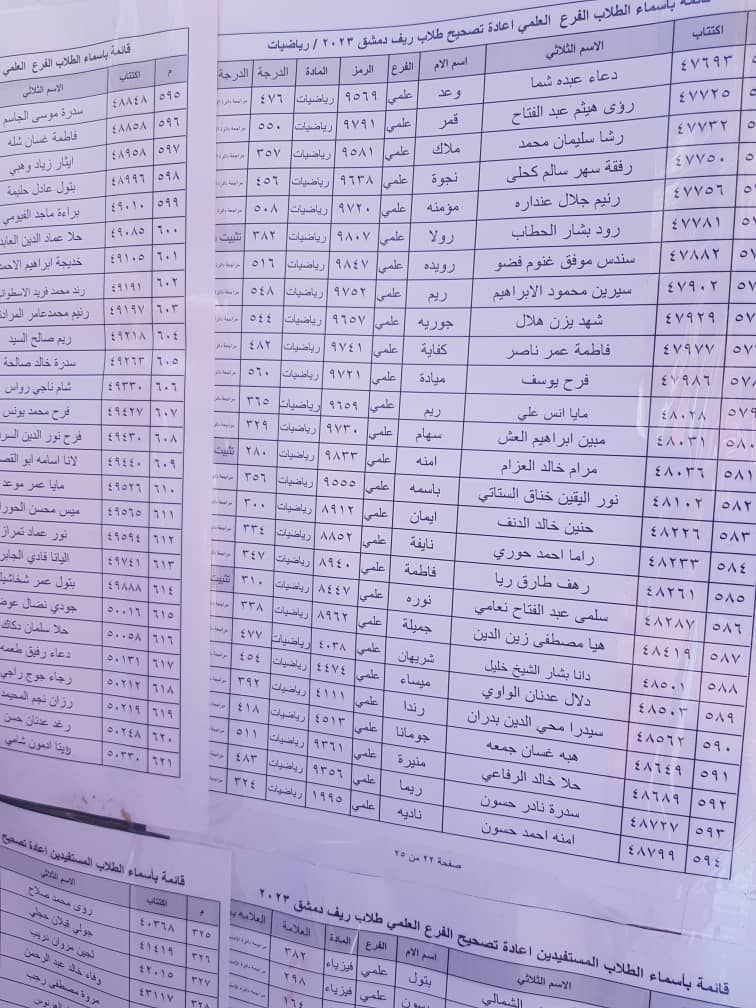 قائمة بأسماء الطلاب الفرع العلمي اعادة تصحيح طلاب ريف دمشق ٢٠٢٣ / رياضيات
اكتتاب الاسم الثلاثي اسم الام الفرع الرمز المادة الدرجة الدرجة
٤٧٦٩٣ دعاء عبده شما وعد علمي ٩٥٦٩ رياضيات ٤٧٦
٤٧٧٢٥ رؤى هيثم عبد الفتاح قمر علمي ٩٧٩١ رياضيات ٥٥٠
٤٧٧٣٢ رشا سليمان محمد ملاك علمي ٩٥٨١ رياضيات ٣٥٧
٤٧٧٥٠ رفقة سهر سالم كحلى نجوة علمي ٩٦٣٨ رياضيات ٤٥٦
٤٧٧٥٦ رنيم جلال عنداره مؤمنه علمي ٩٧٢٠ رياضيات ٥٠٨
٤٧٧٨١ رود بشار الحطاب رولا علمي ٩٨٠٧ رياضيات ٣٨٢ تثبيت
٤٧٨٨٢ سندس موفق غنوم فضو رويده علمي ٩٨٤٧ رياضيات ٥١٦
٤٧٩٠٢ سيرين محمود الابراهيم ريم علمي ٩٧٥٢ رياضيات ٥٤٨
٤٧٩٢٩ شهد يزن هلال جوريه علمي ٩٦٥٧ رياضيات ٥٤٤
٤٧٩٧٧ فاطمة عمر ناصر كفاية علمي ٩٧٤١ رياضيات ٤٨٢
٤٧٩٨٦ فرح يوسف ميادة علمي ٩٧٢١ رياضيات ٥٦٠
٥٧٩ ٤٨٠٢٨ مايا انس علي ريم علمي ٩٦٥٩ رياضيات ٣٦٥
٥٨٠ ٤٨٠٣١ مبين ابراهيم العش سهام علمي ٩٧٣٠ رياضيات ٣٢٩
٥٨١ ٤٨٠٣٦ مرام خالد العزام امنه علمي ٩٨٣٣ رياضيات ٢٨٠ تثبيت
٥٨٢ ٤٨١٠٢ نور اليقين خناق الستاتي باسمه علمي ٩٥٥٥ رياضيات ٣٥٦
٥٨٣ ٤٨٢٢٦ حنين خالد الدنف ايمان علمي ٨٩١٢ رياضيات ٣٠٠
٥٨٤ ٤٨٢٣٣ راما احمد حوري نايفة علمي ٨٨٥٢ رياضيات ٣٣٤
٥٨٥ ٤٨٢٦١ رهف طارق ريا فاطمة علمي ٨٩٤٠ رياضيات ٣٤٧
٥٨٦ ٤٨٢٨٧ سلمى عبد الفتاح نعامي نوره علمي ٨٤٤٧ رياضيات ٣١٠ تثبيت
٥٨٧ ٤٨٤١٩ هيا مصطفى زين الدين جميلة علمي ٨٩٦٢ رياضيات ٣٣٨
٥٨٨ ٤٨٥٠١ دانا بشار الشيخ خليل شريهان علمي ٤٠٣٨ رياضيات ٤٧٧
٥٨٩ ٤٨٥٠٣ دلال عدنان الواوي ميساء علمي ٤٤٧٤ رياضيات ٤٥٤
٥٩٠ ٤٨٥٦٢ سيدرا محي الدين بدران رندا علمي ٤١١١ رياضيات ٣٩٢
٥٩١ ٤٨٦٤٩ هبه غسان جمعه جومانا علمي ٤٥١٣ رياضيات ٤١٨
٥٩٢ ٤٨٦٨٩ حلا خالد الرفاعي منيرة علمي ٩٣٦١ رياضيات ٥١١
٥٩٣ ٤٨٧٢٧ سدرة نادر حسون ريما علمي ٩٣٥٦ رياضيات ٤٨٣
٥٩٤ ٤٨٧٩٩ امنه احمد حسون ناديه علمي ١٩٩٥ رياضيات ٣٢٤
صفحة ٢٢ من ٢٥
قائمة بأسماء الطلاب الفرع العلمي
م اكتتاب الاسم الثلاثي
٥٩٥ ٤٨٨٤٨ سدرة موسى الجاسم
٥٩٦ ٤٨٨٥٨ فاطمة غسان شله
٥٩٧ ٤٨٩٥٨ ايثار زياد وهبي
٥٩٨ ٤٨٩٩٦ بتول عادل حليمة
٥٩٩ ٤٩٠١٠ براءة ماجد الفيومي
٦٠٠ ٤٩٠٨٥ حلا عماد الدين العابد
٦٠١ ٤٩١٠٥ خديجة ابراهيم الاحمد
٦٠٢ ٤٩١٩١ رند محمد فريد الاسطواني
٦٠٣ ٤٩١٩٧ رنيم محمدعامر المرادة
٦٠٤ ٤٩٢١٨ ريم صالح السيد
٦٠٥ ٤٩٢٦٣ سدرة خالد صالحة
٦٠٦ ٤٩٣٣٠ شام ناجي رواس
٦٠٧ ٤٩٤٢٧ فرح محمد يونس
٦٠٨ ٤٩٤٣٠ فرح نور الدين
٦٠٩ ٤٩٤٤٠ لانا اسامه ابو
٦١٠ ٤٩٥٢٦ مايا عمر موعد
٦١١ ٤٩٥٦٥ ميس محسن
٦١٢ ٤٩٥٩٤ نور عماد تمراز
٦١٣ ٤٩٧٤١ اليانا فادي
٦١٤ ٤٩٨٨٨ بتول عمر
٦١٥ ٥٠٠١٦ جودي نضال
٦١٦ ٥٠٠٥٨ حلا سلمان دكاك
٦١٧ ٥٠١٣١ دعاء رفيق طعمه
٦١٨ ٥٠٢١٢ رجاء جوج راجي
٦١٩ ٥٠٢١٩ رزان نجم المحيمد
٦٢٠ ٥٠٢٤٨ رغد عدنان حسن
٦٢١ ٥٠٣٣٠ ريتا ادمون شامي
قائمة بأسماء الطلاب المستفيدين اعادة تصحيح الفرع العلمي طلاب ريف دمشق ٢٠٢٣
الاسم الثلاثي اسم الام الفرع المادة العلامة
الشمالي بتول علمي فيزياء ٣٨٢
علمي فيزياء ٢٩٨
١٦٤
قائمة بأسماء الطلاب المستفيدين اعادة تصحيح
م اكتتاب الاسم الثلاثي
٣٢٥ ٤٠٣٦٨ رؤى محمد صلاح
٣٢٦ ٤١٤١٩ جولي قبلان حجلي
٣٢٧ ٤٢٠١٥ لجين مروان دريب
٤٣١١٧ وفاء خالد عبد الرحمن
مروة مصطفى رجب